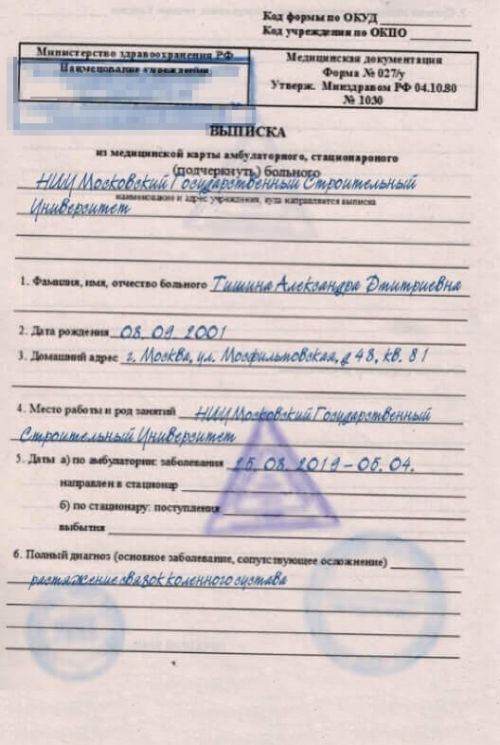 Код формы по ОКУД
Код учреждения по ОКПО
Министерство здравоохранения РФ
Наименование учреждения
Медицинская документация
Форма № 027/у
Утверж. Минздравом РФ 04.10.80
№ 1030
ВЫПИСКА
из медицинской карты амбулаторного, стационарного
(подчеркнуть) больного
НИУ Московский Государственный Строительный
наименование и адрес учреждения, куда направляется выписка
Университет
1. Фамилия, имя, отчество больного Тишина Александра Дмитриевна
2. Дата рождения 08.09.2001
3. Домашний адрес г. Москва, ул. Мосфильмовская, д 48, кв. 81
4. Место работы и род занятий НИУ Московский Государственный
Строительный Университет
5. Даты а) по амбулатории: заболевания 25.03.2019 – 05.04.
направлен в стационар
б) по стационару: поступления
выбытия
6. Полный диагноз (основное заболевание, сопутствующее осложнение)
растяжение связок коленного сустава